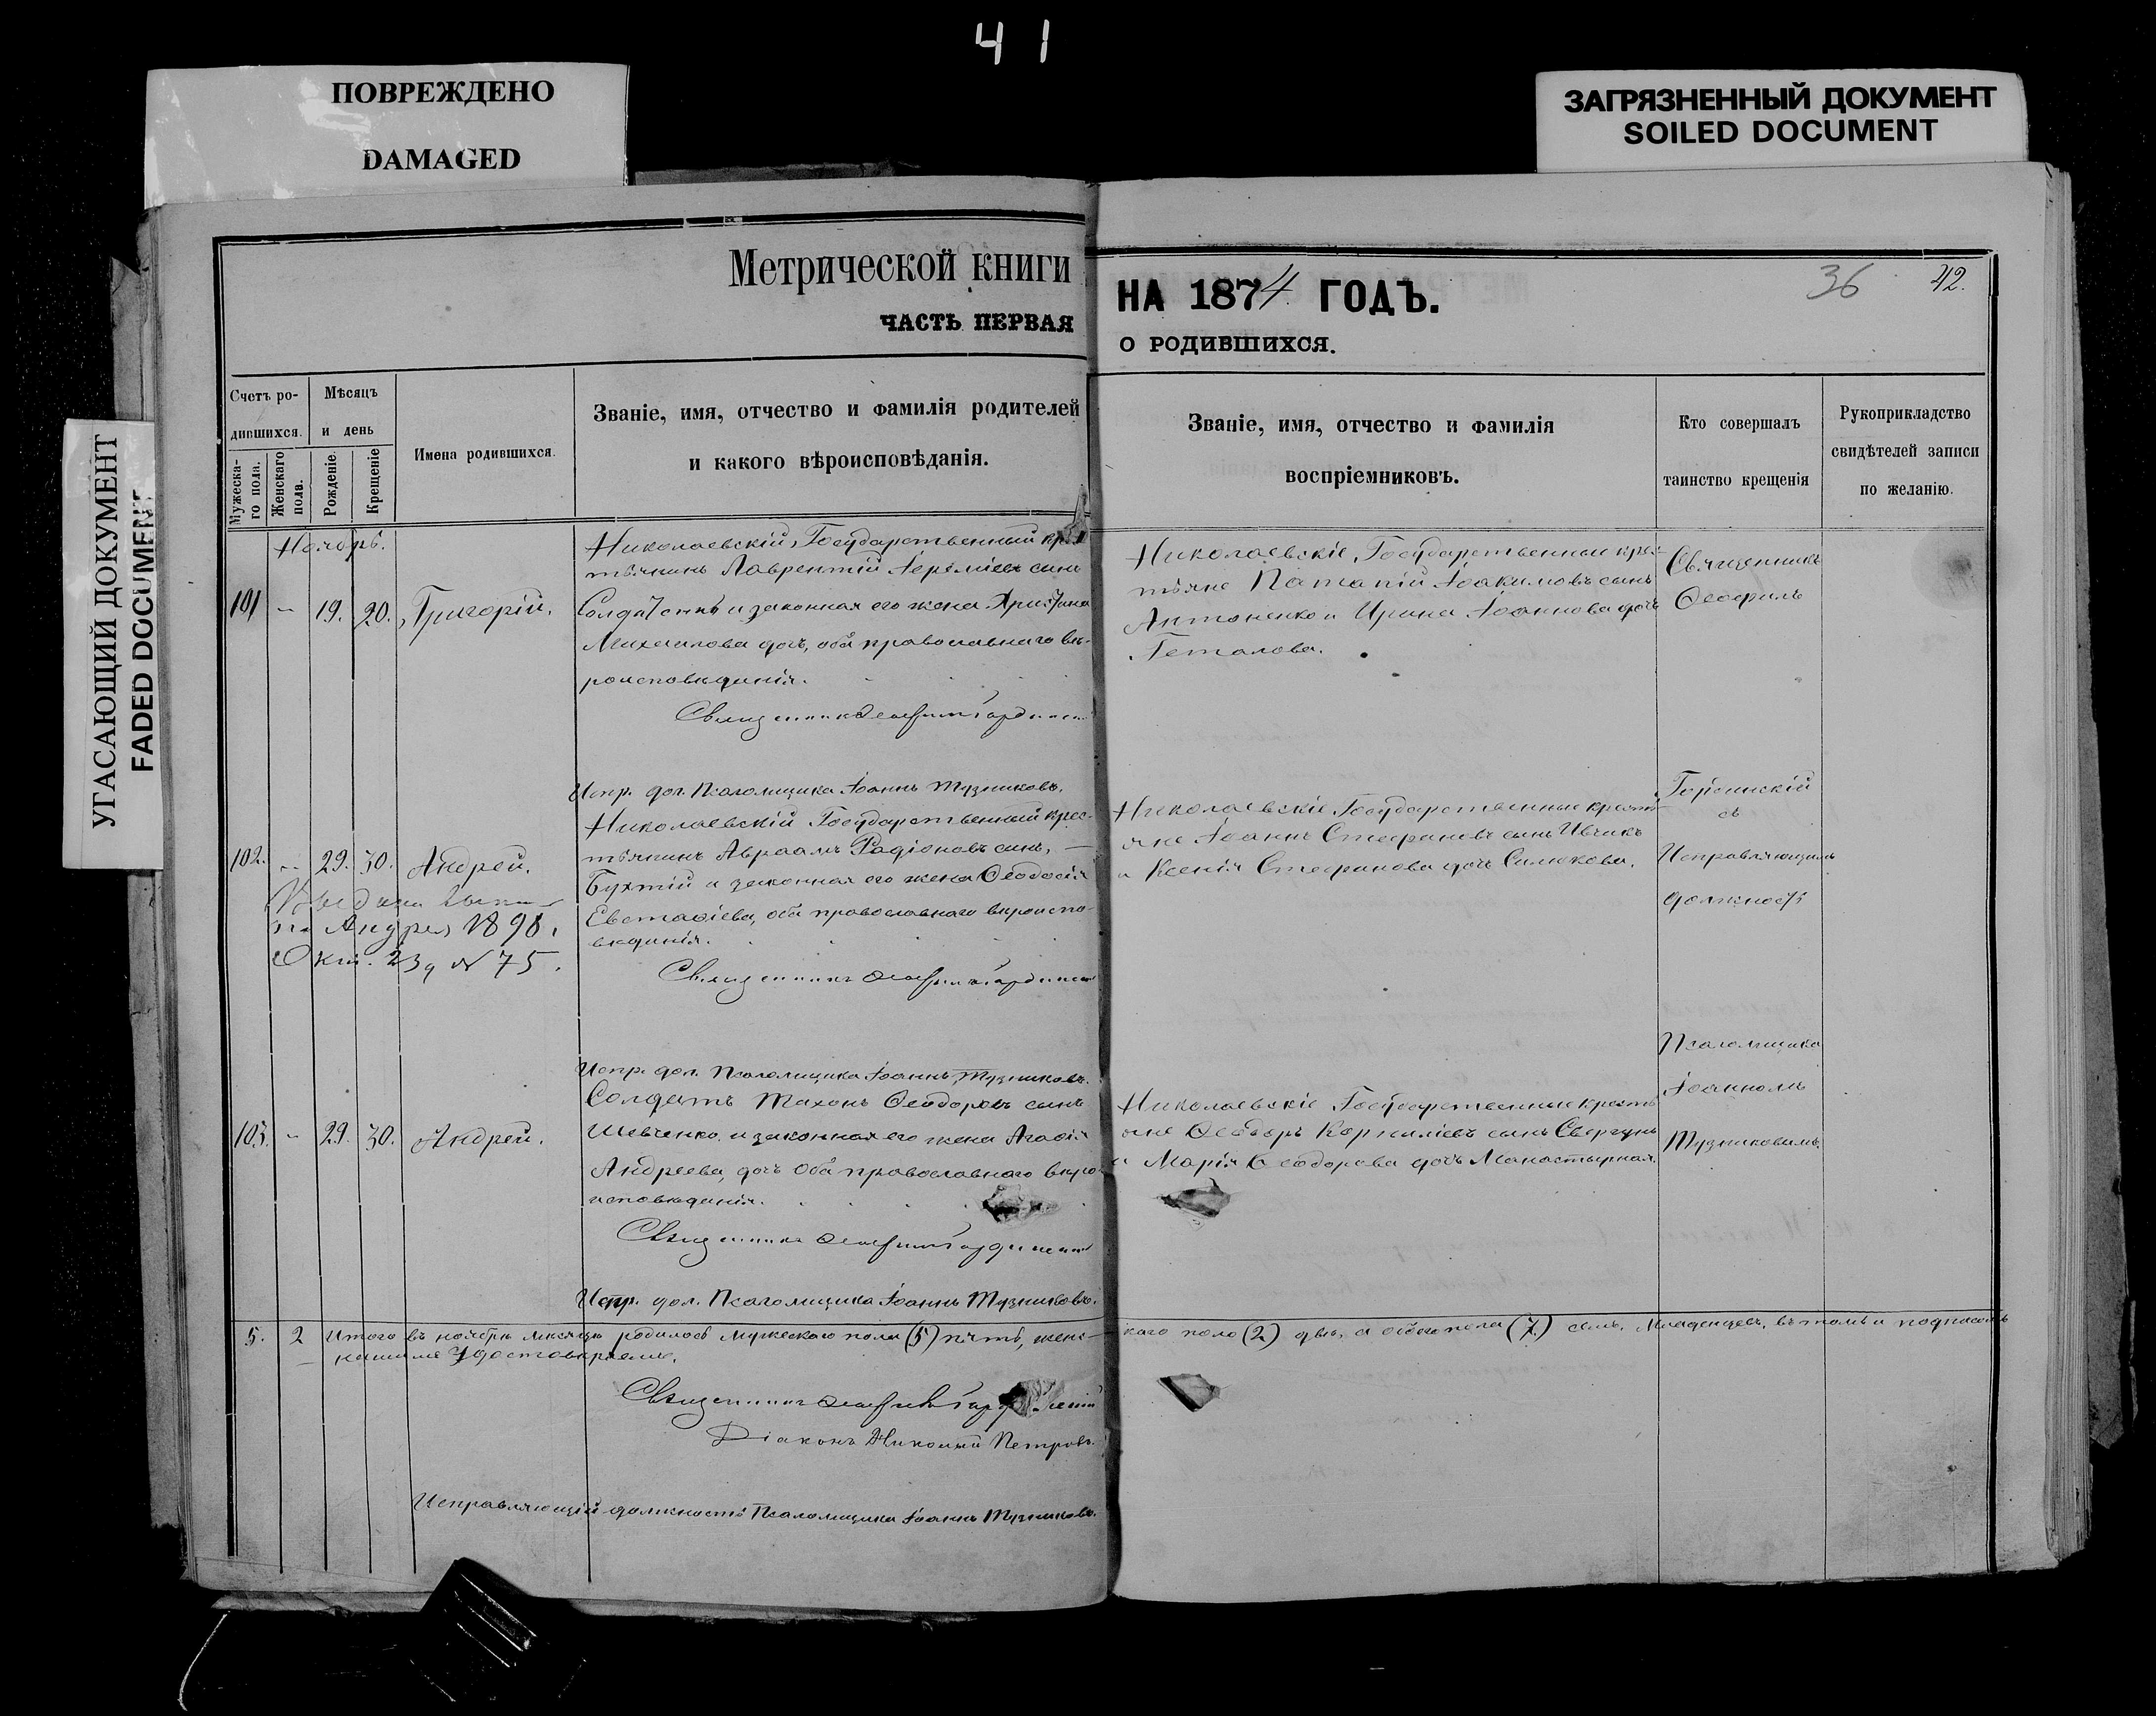 41
ПОВРЕЖДЕНО
DAMAGED
ЗАГРЯЗНЕННЫЙ ДОКУМЕНТ
SOILED DOCUMENT
УГАСАЮЩИЙ ДОКУМЕНТ
FADED DOCUMENT
Метрической книги
ЧАСТЬ ПЕРВАЯ
НА 1874 ГОДЪ.
О РОДИВШИХСЯ.
36 42.
Счетъ ро-
дившихся.
Мѣсяцъ
и день
Мужеска-
го пола.
Женскаго
пола.
Рожденіе.
Крещеніе
Имена родившихся.
Званіе, имя, отчество и фамилія родителей
и какого вѣроисповѣданія.
Званіе, имя, отчество и фамилія
воспріемниковъ.
Кто совершалъ
таинство крещенія
Рукоприкладство
свидѣтелей записи
по желанію.
Ноябрь.
101 – 19. 20. Григорій.
Николаевскій, Государственный крес
тьянинъ Лаврентій Іереміевъ сынъ
и законная его жена Христина
Михайлова дочь, оба православнаго вѣ-
роисповѣданія.
Священникъ
Испр. дол. Псаломщика Іоаннъ Тузниковъ.
Николаевскіе, Государственные крес-
тьяне Патапій Іоакимовъ сынъ
Антоненко и Ирина Іоаннова дочь
Священникъ
Ѳеофилъ
102. – 29. 30. Андрей.
Николаевскій Государственный крес-
тьянинъ Авраамъ Радіоновъ сынъ,
Бухтій и законная его жена Ѳеодосія
Евстафіева, оба православнаго вѣроиспо-
вѣданія.
Священникъ
Андрея 1898.
Окт. 23д № 75.
Николаевскіе Государственные кресть
яне Іоаннъ Стефановъ сынъ
и Ксенія Стефанова дочь
съ
Исправляющимъ
должность
Испр. дол. Псаломщика Іоаннъ Тузниковъ.
103. – 29. 30. Андрей.
Солдатъ Тихонъ Ѳеодоровъ сынъ
Шевченко и законная его жена Агафія
Андреева, дочь оба православнаго вѣро
исповѣданія.
Священникъ
Испр. дол. Псаломщика Іоаннъ Тузниковъ.
Николаевскіе Государственные кресть
яне Ѳеодоръ Корниліевъ сынъ
и Марія Ѳеодорова дочь Манастырная.
Псаломщика
Іоанномъ
Тузниковымъ
5. 2 Итого въ ноябрѣ мѣсяцѣ родилось мужескаго пола (5) пять, женс-
каго пола (2) двѣ, а обоего пола (7) семь, младенцевъ, въ томъ и подписомъ
нашимъ удостовѣряемъ.
Священникъ
Діаконъ Николай Петровъ.
Исправляющій должность Псаломщика Іоаннъ Тузниковъ.